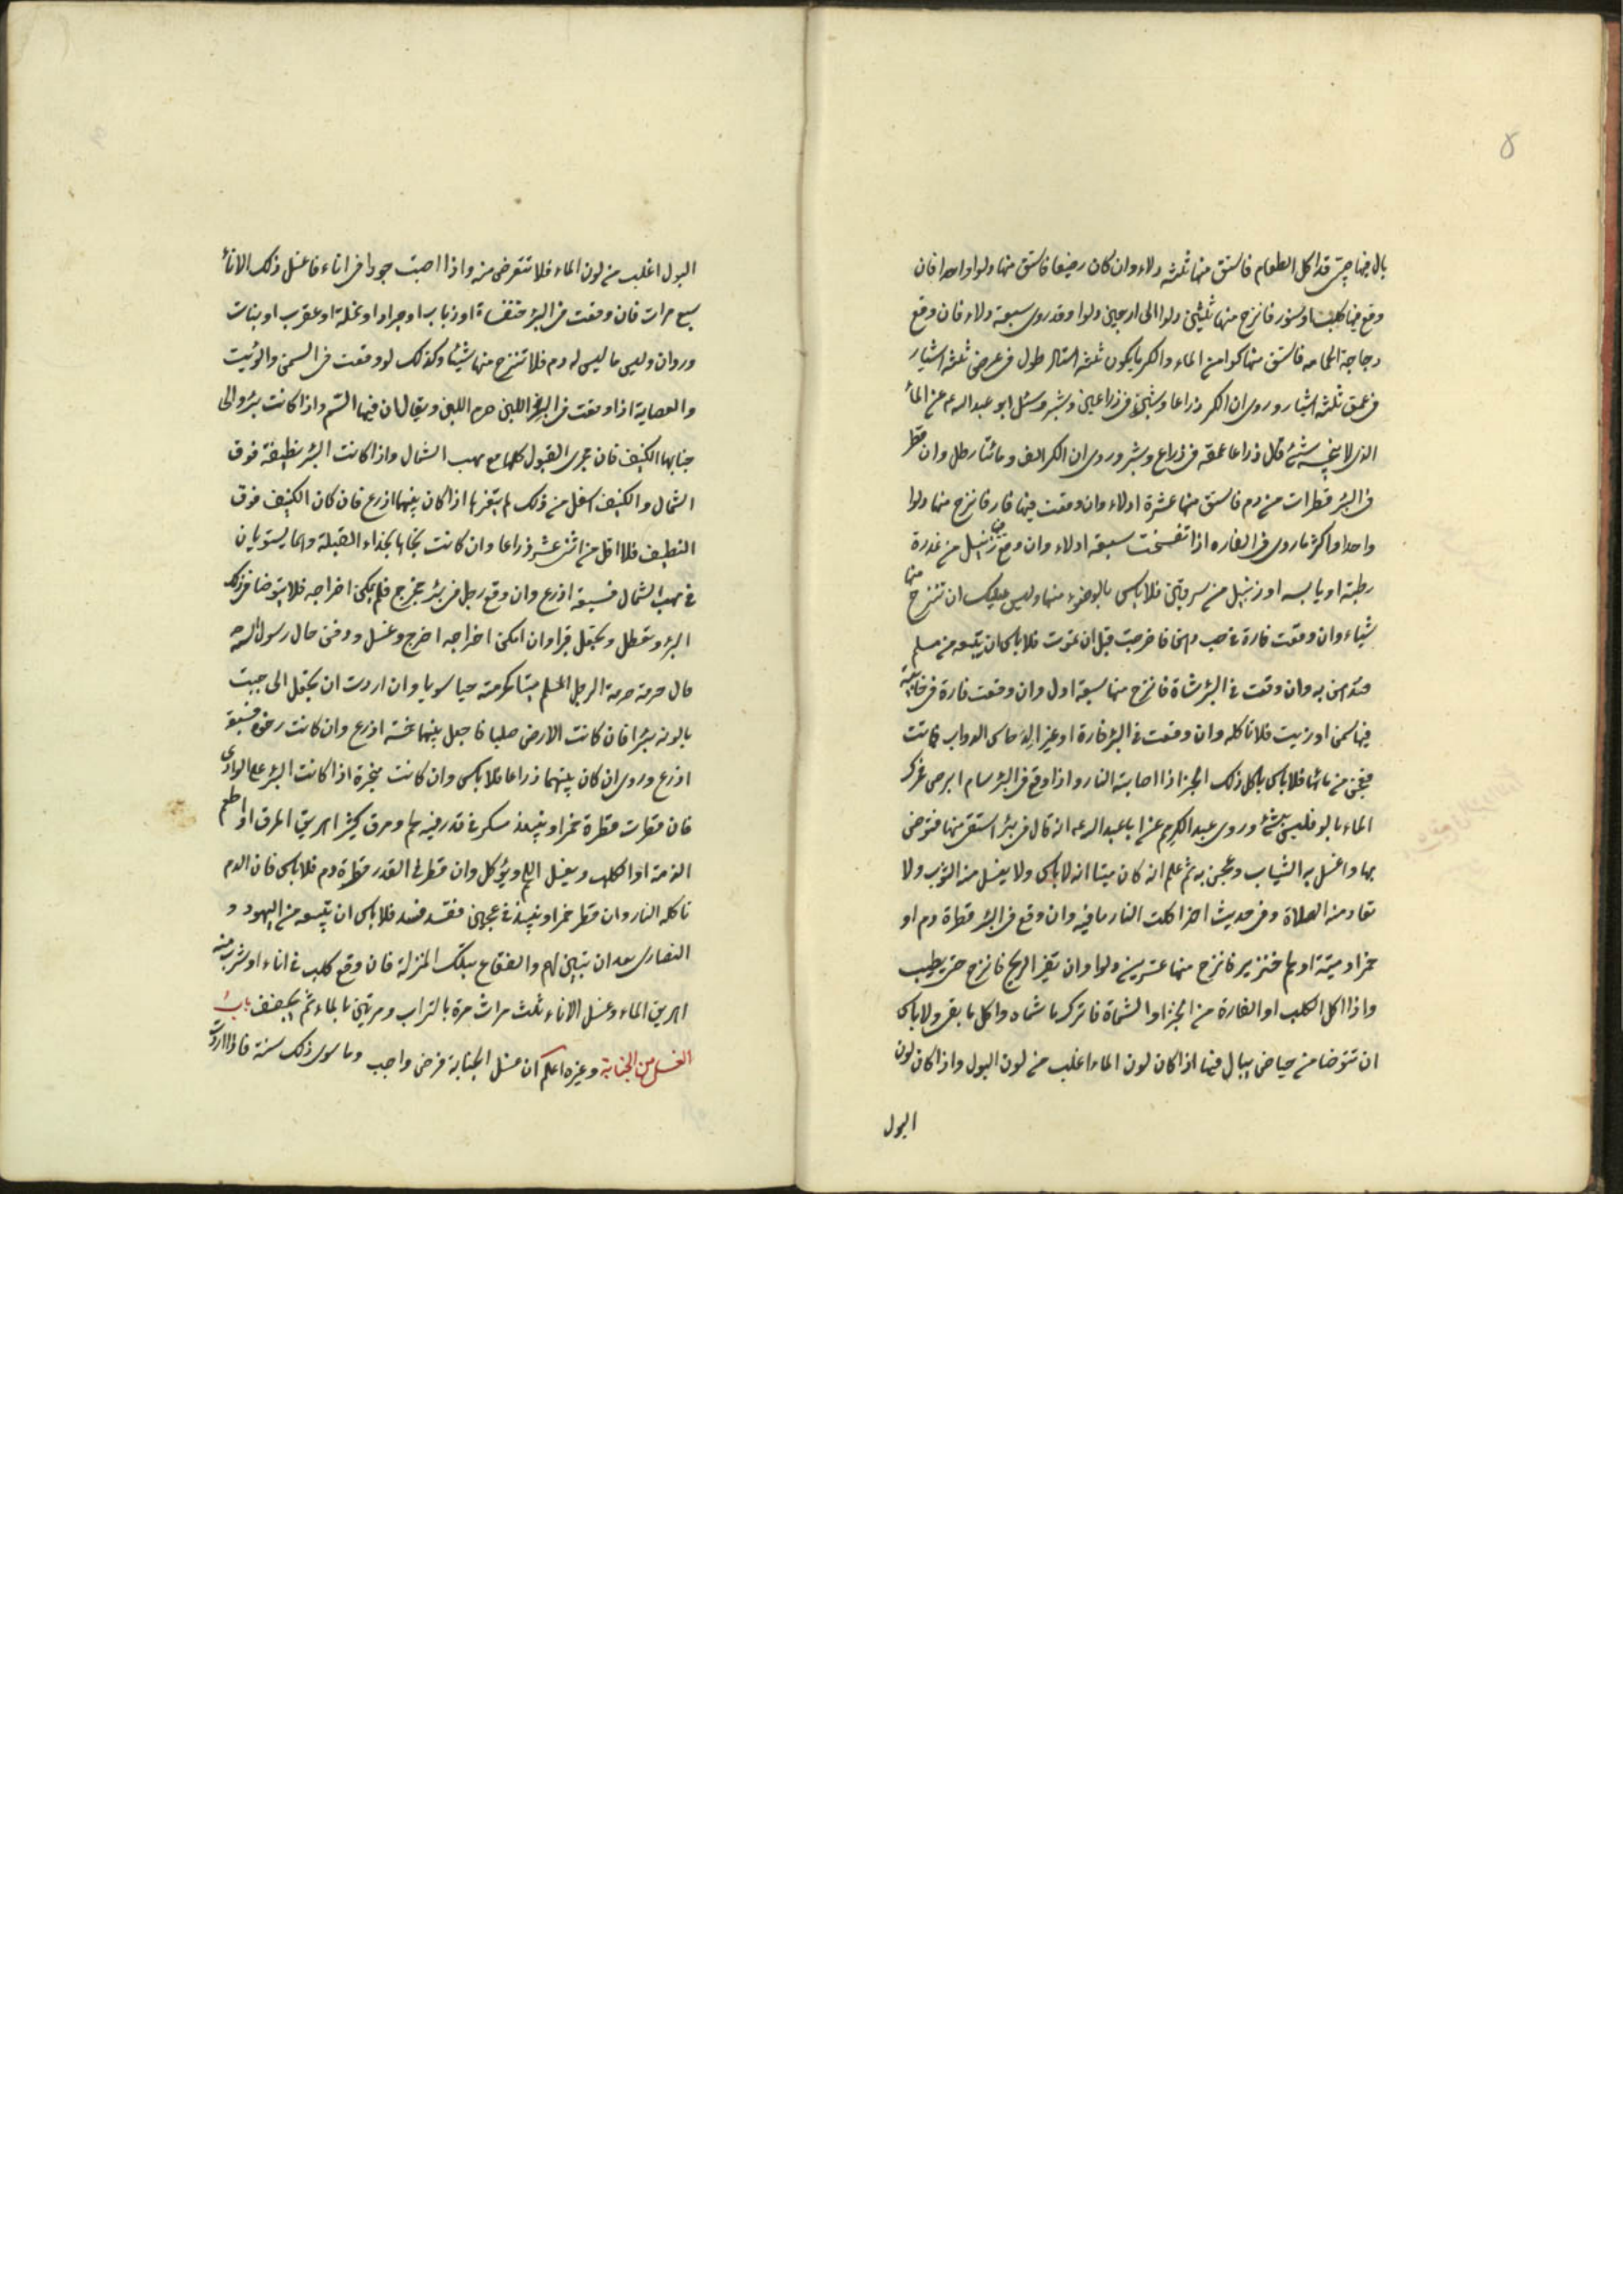 بال فيها صبي قد اكل الطعام فاستق منها ثلثة دلاء وان كان رضيعا فاستق منها دلوا واحدا فان
وقع فيها كلب او سنور فانزح منها ثلثين دلوا الى اربعين دلوا وقد روى سبعة دلاء فان وقع
دجاجة او حمامة فاستق منها كرا من الماء والكر ما يكون ثلثة اشبار طول فى عرض ثلثة اشبار
فى عمق ثلثة اشبار وروى ان الكر ذراعا وشبر فى ذراعين وشبر وسئل ابو عبد الله ع عن الماء
الذى لا ينجسه شئ قال ذراعا عمقه فى ذراع وشبر وروى ان الكر الف ومائتا رطل وان قطر
فى البئر قطرات من دم فاستق منها عشرة ادلاء وان وقعت فيها فار فانزح منها دلوا
واحدا واكثر ما روى فى الفاره اذا تفسخت سبعة ادلاء وان وقع فيها زنبيل من عذرة
رطبة او يابسه او زنبيل من سرقين فلا باس بالوضوء منها وليس عليك ان تنزح منها
شيئا وان وقعت فارة فى حب دهن فاخرجت قبل ان تموت فلا باس ان تبيعه من مسلم
وتدهن به وان وقعت فى البئر شاة فانزح منها سبعة ادل وان وقعت فارة فى خابية
فيها سمن او زيت فلا تاكله وان وقعت فى البئر فارة او غيرها من الدواب فماتت
فعجن من مائها فلا باس باكل ذلك الخبز اذا اصابته النار واذا وقع فى البئر سام ابرص فحرك
الماء بالدلو فليس بشئ وروى عبد الكريم عن ابا عبد الله ع انه قال فى بئر استقى منها فتوضى
بها واغسل به الثياب وعجن به ثم علم انه كان ميتا انه لا باس ولا يغسل منه الثوب ولا
تعاد منه الصلاة وفى حديث اخر اكلت النار ما فيه وان وقع فى البئر قطرة دم او
خمر او ميتة او لحم خنزير فانزح منها عشرين دلوا وان تغير الريح فانزح حتى يطيب
واذا اكل الكلب او الفارة من الخبز او الشماه فاترك ما شماه واكل ما بقى ولا باس
ان تتوضا من حياض يبال فيها اذا كان لون الماء اغلب من لون البول واذا كان لون
البول
البول اغلب من لون الماء فلا تتوضى منه واذا اصبت جردا فى اناء فاغسل ذلك الاناء
سبع مرات فان وقعت فى البئر خنفساة او ذباب او جراد او نملة او عقرب او بنات
وردان وليس ما ليس له دم فلا تنزح منها شيئا وكذلك لو وقعت فى السمن والزيت
والعصاية اذا وقعت فى اللبن حرم اللبن ويقال ان فيها السم واذا كانت بئر والى
جنابها الكنيف فان مجرى القبول كلها مع مهب الشمال واذا كانت البئر نظيفة فوق
الشمال والكنيف اسفل من ذلك لم يتغيرها اذا كان بينهما اذرع فان كان الكنيف فوق
النظيف فلا اقل من اثنى عشر ذراعا وان كانت تجاها بحذاء القبلة وهما يستويان
فى مهب الشمال فسبعة اذرع وان وقع رجل فى بئر مخرج فلم يمكن اخراجه فلا يتوضا فى ذلك
البئر وتعطل ويجعل قبرا وان امكن اخراجه اخرج وغسل ودفن قال رسول الله
قال حرمة الرجل المسلم ميتا كحرمته حيا سويا وان اردت ان تجعل الى جنب
بالوعه بئرا فان كانت الارض صلبا فاجعل بينهما خمسة اذرع وان كانت رخوة فسبعة
اذرع وروى ان كان بينهما ذراعا فلا باس وان كانت مبخرة اذا كانت البئر على الوادى
فان قطرت قطرة خمر او نبيذ مسكر فى قدر فيه لحم ومرق كثير اهريق المرق او اطعم
الذمة او الكلب ويغسل اللحم ويؤكل وان قطر فى القدر قطرة دم فلا باس فان الدم
تاكله النار وان قطر خمر او نبيذ فى عجين فقد فسد فلا باس ان تبيعه من اليهود و
النصارى بعد ان تبين لهم والفقاع بتلك المنزلة فان وقع كلب فى اناء او شرب منه
اهريق الماء وغسل الاناء ثلث مرات مرة بالتراب ومرتين بالماء ثم يجفف باب
الغسل من الجنابة وغيره اعلم ان غسل الجنابة فرض واجب وما سوى ذلك سنة فاذا اردت